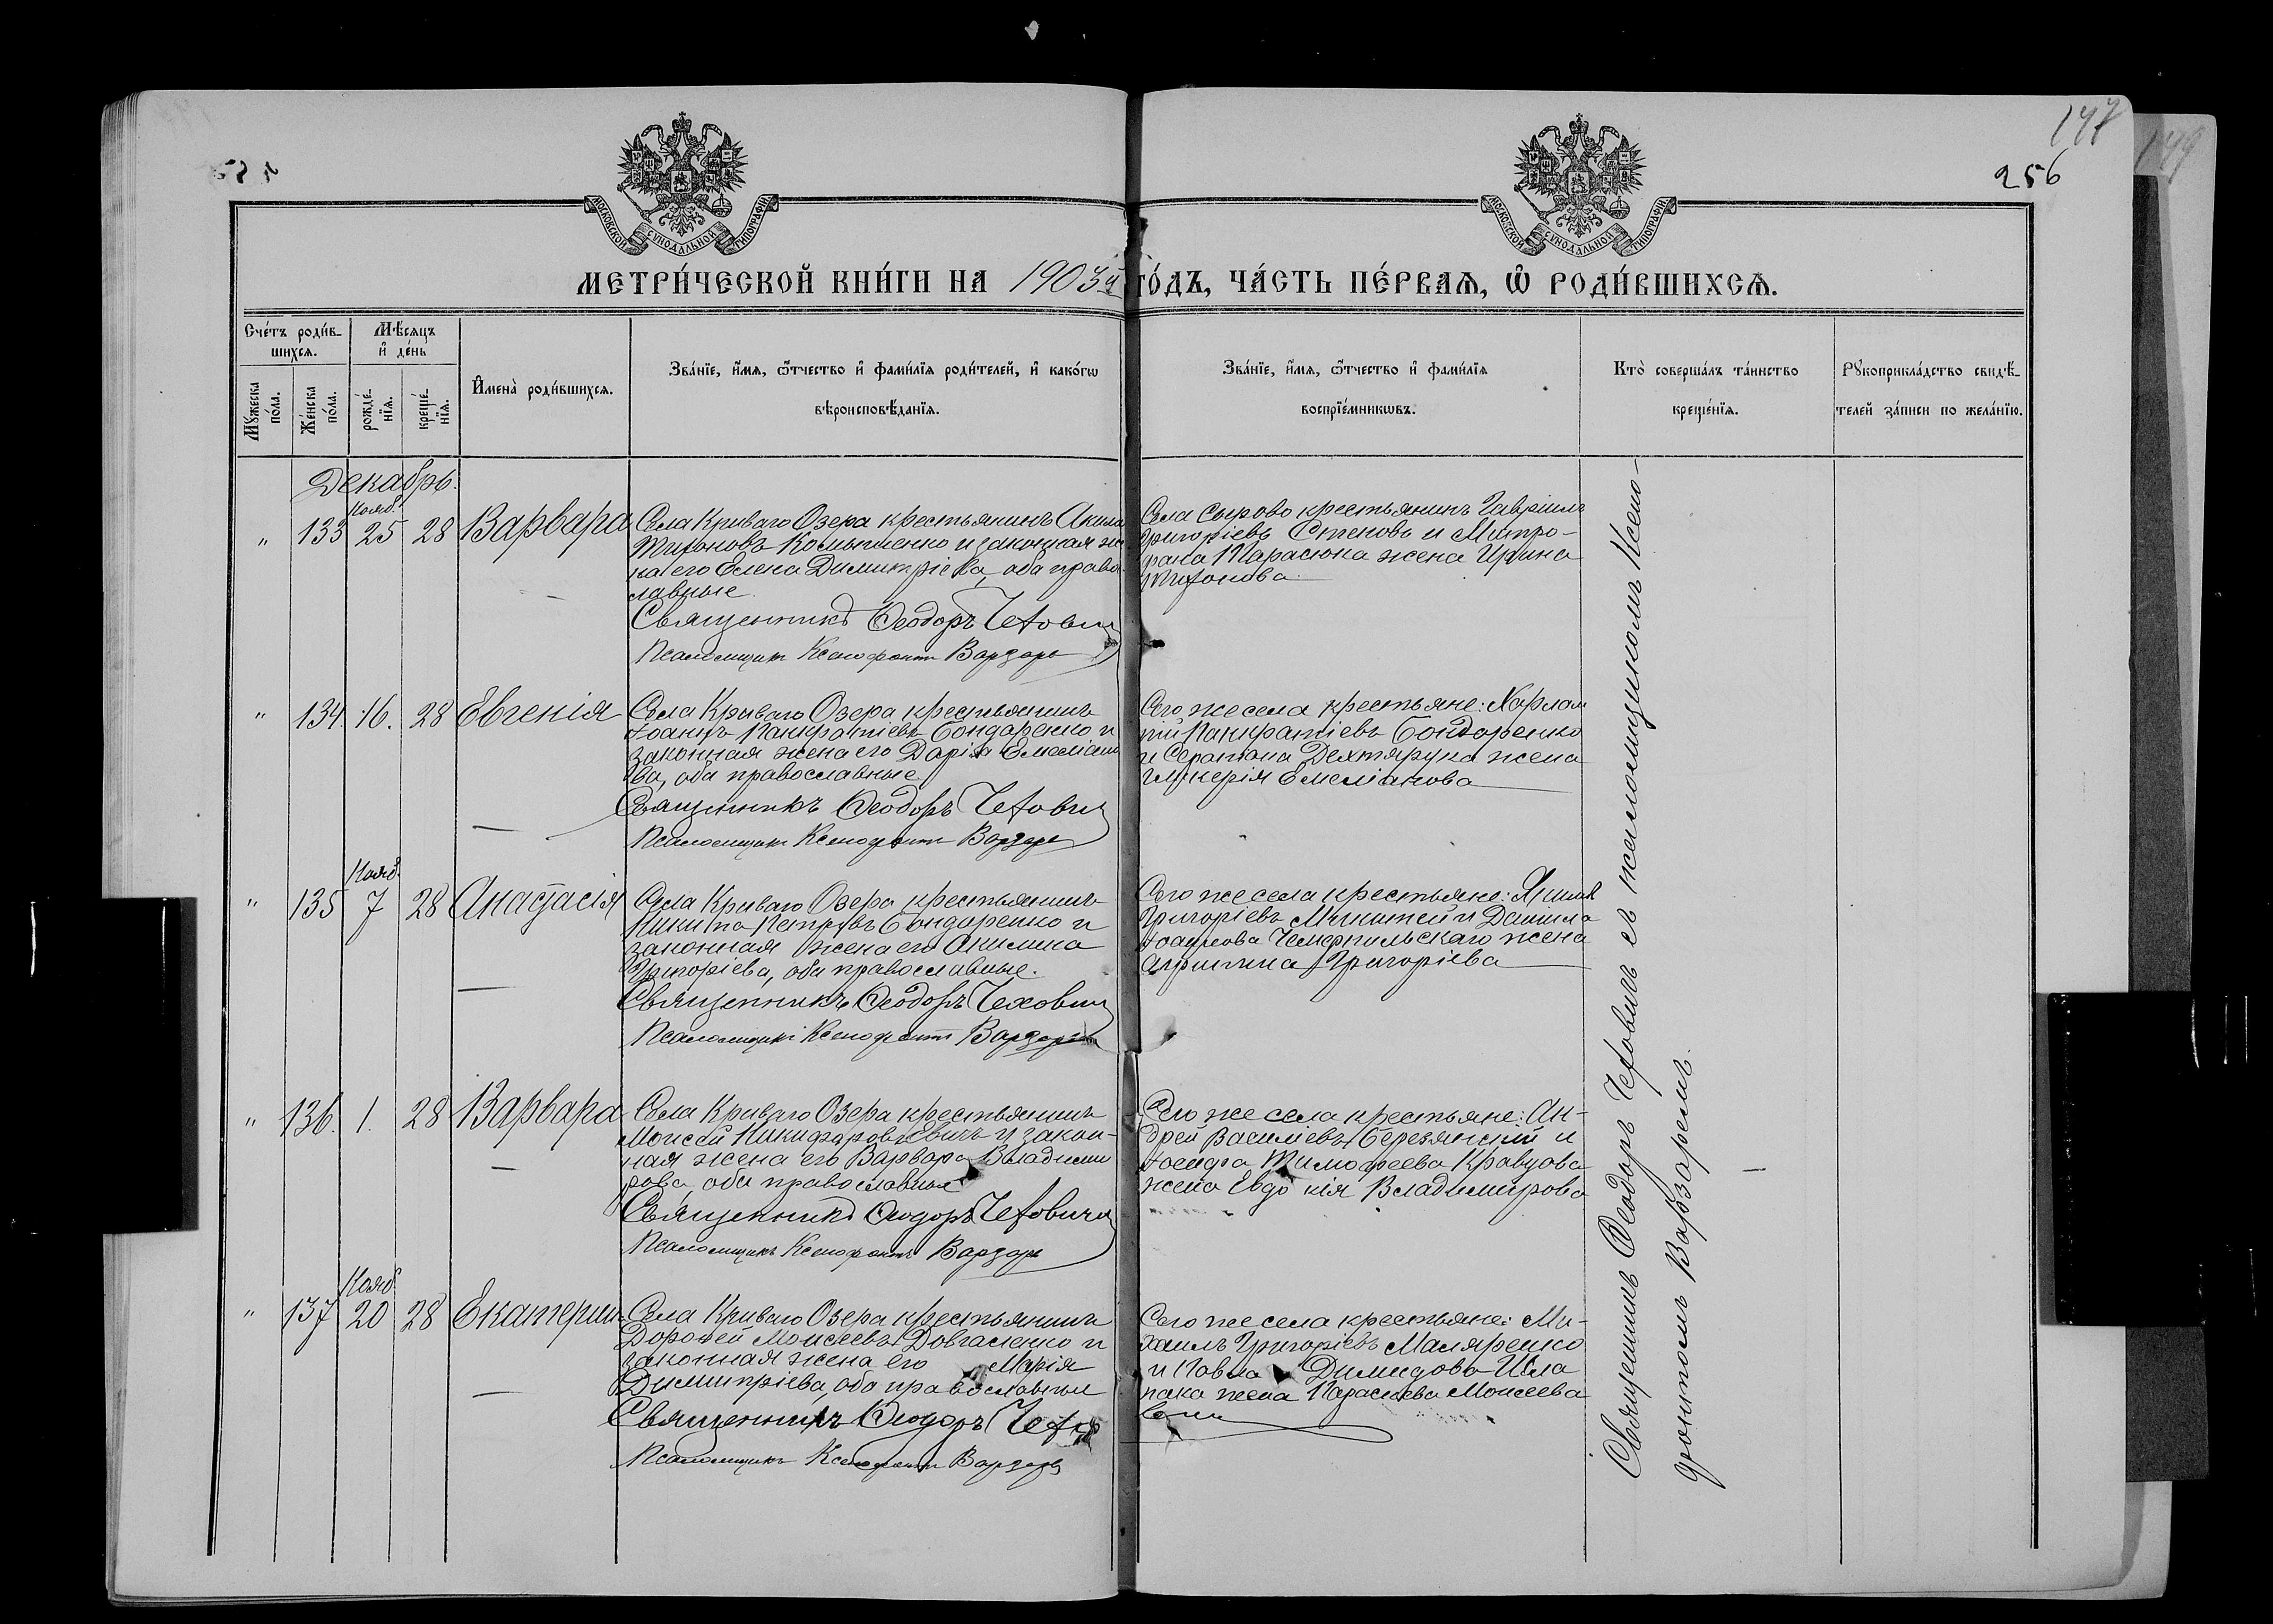 147
149
256
МОСКОВСКОЙ СѴНОДАЛЬНОЙ ТИПОГРАФІИ
МОСКОВСКОЙ СѴНОДАЛЬНОЙ ТИПОГРАФІИ
МЕТРИ́ЧЕСКОЙ КНИ́ГИ НА 1903й ГО́ДЪ, ЧА́СТЬ ПЕ́РВАѦ, Ѡ҆ РОДИ́ВШИХСѦ.
Сче́тъ роди́в-
шихсѧ.
Мꙋжеска по́ла.
Же́нска по́ла.
Мѣ́сѧцъ
и҆ де́нь
рожде́-
нїѧ.
креще́-
нїѧ.
И҆мена̀ роди́вшихсѧ.
Зва́нїе, и҆́мѧ, ѻ҆́тчество и҆ фами́лїѧ роди́телей, и҆ како́гѡ
вѣроисповѣ́данїѧ.
Зва́нїе, и҆́мѧ, ѻ҆́тчество и҆ фами́лїѧ
воспрїе́мникѡвъ.
Кто̀ соверша́лъ та́инство
креще́нїѧ.
Рꙋкоприкла́дство свидѣ́-
телей за́писи по жела́нїю.
Декабрь.
" 133 Нояб. 25 28 Варвара
Села Криваго Озера крестьянинъ Акимъ
Тихоновъ и законная же
на его Елена Димитріева, оба право
славные
Священникъ Ѳеодоръ Чехович
Псаломщикъ Ксенофонтъ Варзарь
Села Сырово крестьянинъ Гавріилъ
Григоріевъ Степовъ и Митро-
фана Тарасюка жена Ирина
Тихонова
" 134. 16. 28 Евгенія
Села Криваго Озера крестьянинъ
Іоаннъ Панкратіевъ Бондаренко и
законная жена его Дарія Емеліано
ва, оба православные
Священникъ Ѳеодоръ Чехович
Псаломщикъ Ксенофонтъ Варзарь
Того же села крестьяне: Харлам
пій Панкратіевъ Бондаренко
и Дехтярука жена
Гликерія Емеліанова
" 135 Нояб. 7 28 Анастасія
Села Криваго Озера крестьянинъ
Никита Петровъ Бондаренко и
законная жена его Акилина
Григоріева, оба православные.
Священникъ Ѳеодоръ Чехович
Псаломщикъ Ксенофонтъ Варзарь
Того же села крестьяне:
Григоріевъ и Даніила
Чемерпильскаго жена
Агрипина Григоріева
" 136. 1. 28 Варвара
Села Криваго Озера крестьянинъ
Моисей Никифоровъ и закон-
ная жена его Варвара Владими
рова, оба православные
Священникъ Ѳеодоръ Чехович
Псаломщикъ Ксенофонтъ Варзарь
Того же села крестьяне: Ан-
дрей Василіевъ Березянский и
Іосифа Тимофеева Кравцова
жена Евдокія Владимирова
" 137 Нояб. 20 28 Екатерина
Села Криваго Озера крестьянинъ
Дорофей Моисеевъ Довгаленко и
законная жена его Марія
Димитріева, оба православные
Священникъ Ѳеодоръ
Псаломщикъ Ксенофонтъ Варзарь
Того же села крестьяне: Ми-
хаилъ Григоріевъ Маляренко
и Павла Димидова
пака жена Параскева Моисеева
Священникъ Ѳеодоръ Чеховичъ съ псаломщикомъ Ксено-
фонтомъ Варзаремъ.